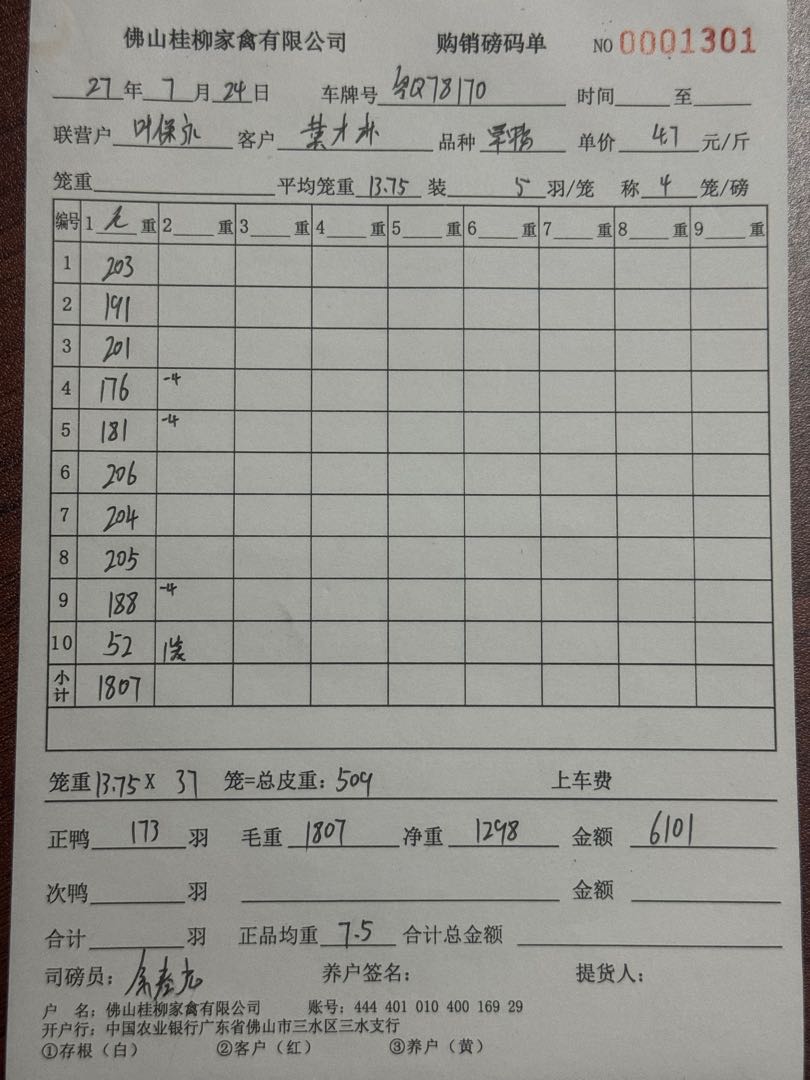 佛山桂柳家禽有限公司 购销磅码单 NO 0001301
27年 7月 24日 车牌号 粤Q78170 时间 至
联营户 叶保永 客户 叶才林 品种 单价 4.7 元/斤
笼重 平均笼重 13.75 装 5 羽/笼 称 4 笼/磅
编号 1 毛 重 2 重 3 重 4 重 5 重 6 重 7 重 8 重 9 重
1 203
2 191
3 201
4 176 -4
5 181 -4
6 206
7 204
8 205
9 188 -4
10 52 1
小计 1807
笼重 13.75 X 37 笼=总皮重: 509 上车费
正鸭 173 羽 毛重 1807 净重 1298 金额 6101
次鸭 羽 金额
合计 羽 正品均重 7.5 合计总金额
司磅员: 养户签名: 提货人:
户 名: 佛山桂柳家禽有限公司 账号: 444 401 010 400 169 29
开户行: 中国农业银行广东省佛山市三水区三水支行
①存根（白） ②客户（红） ③养户（黄）